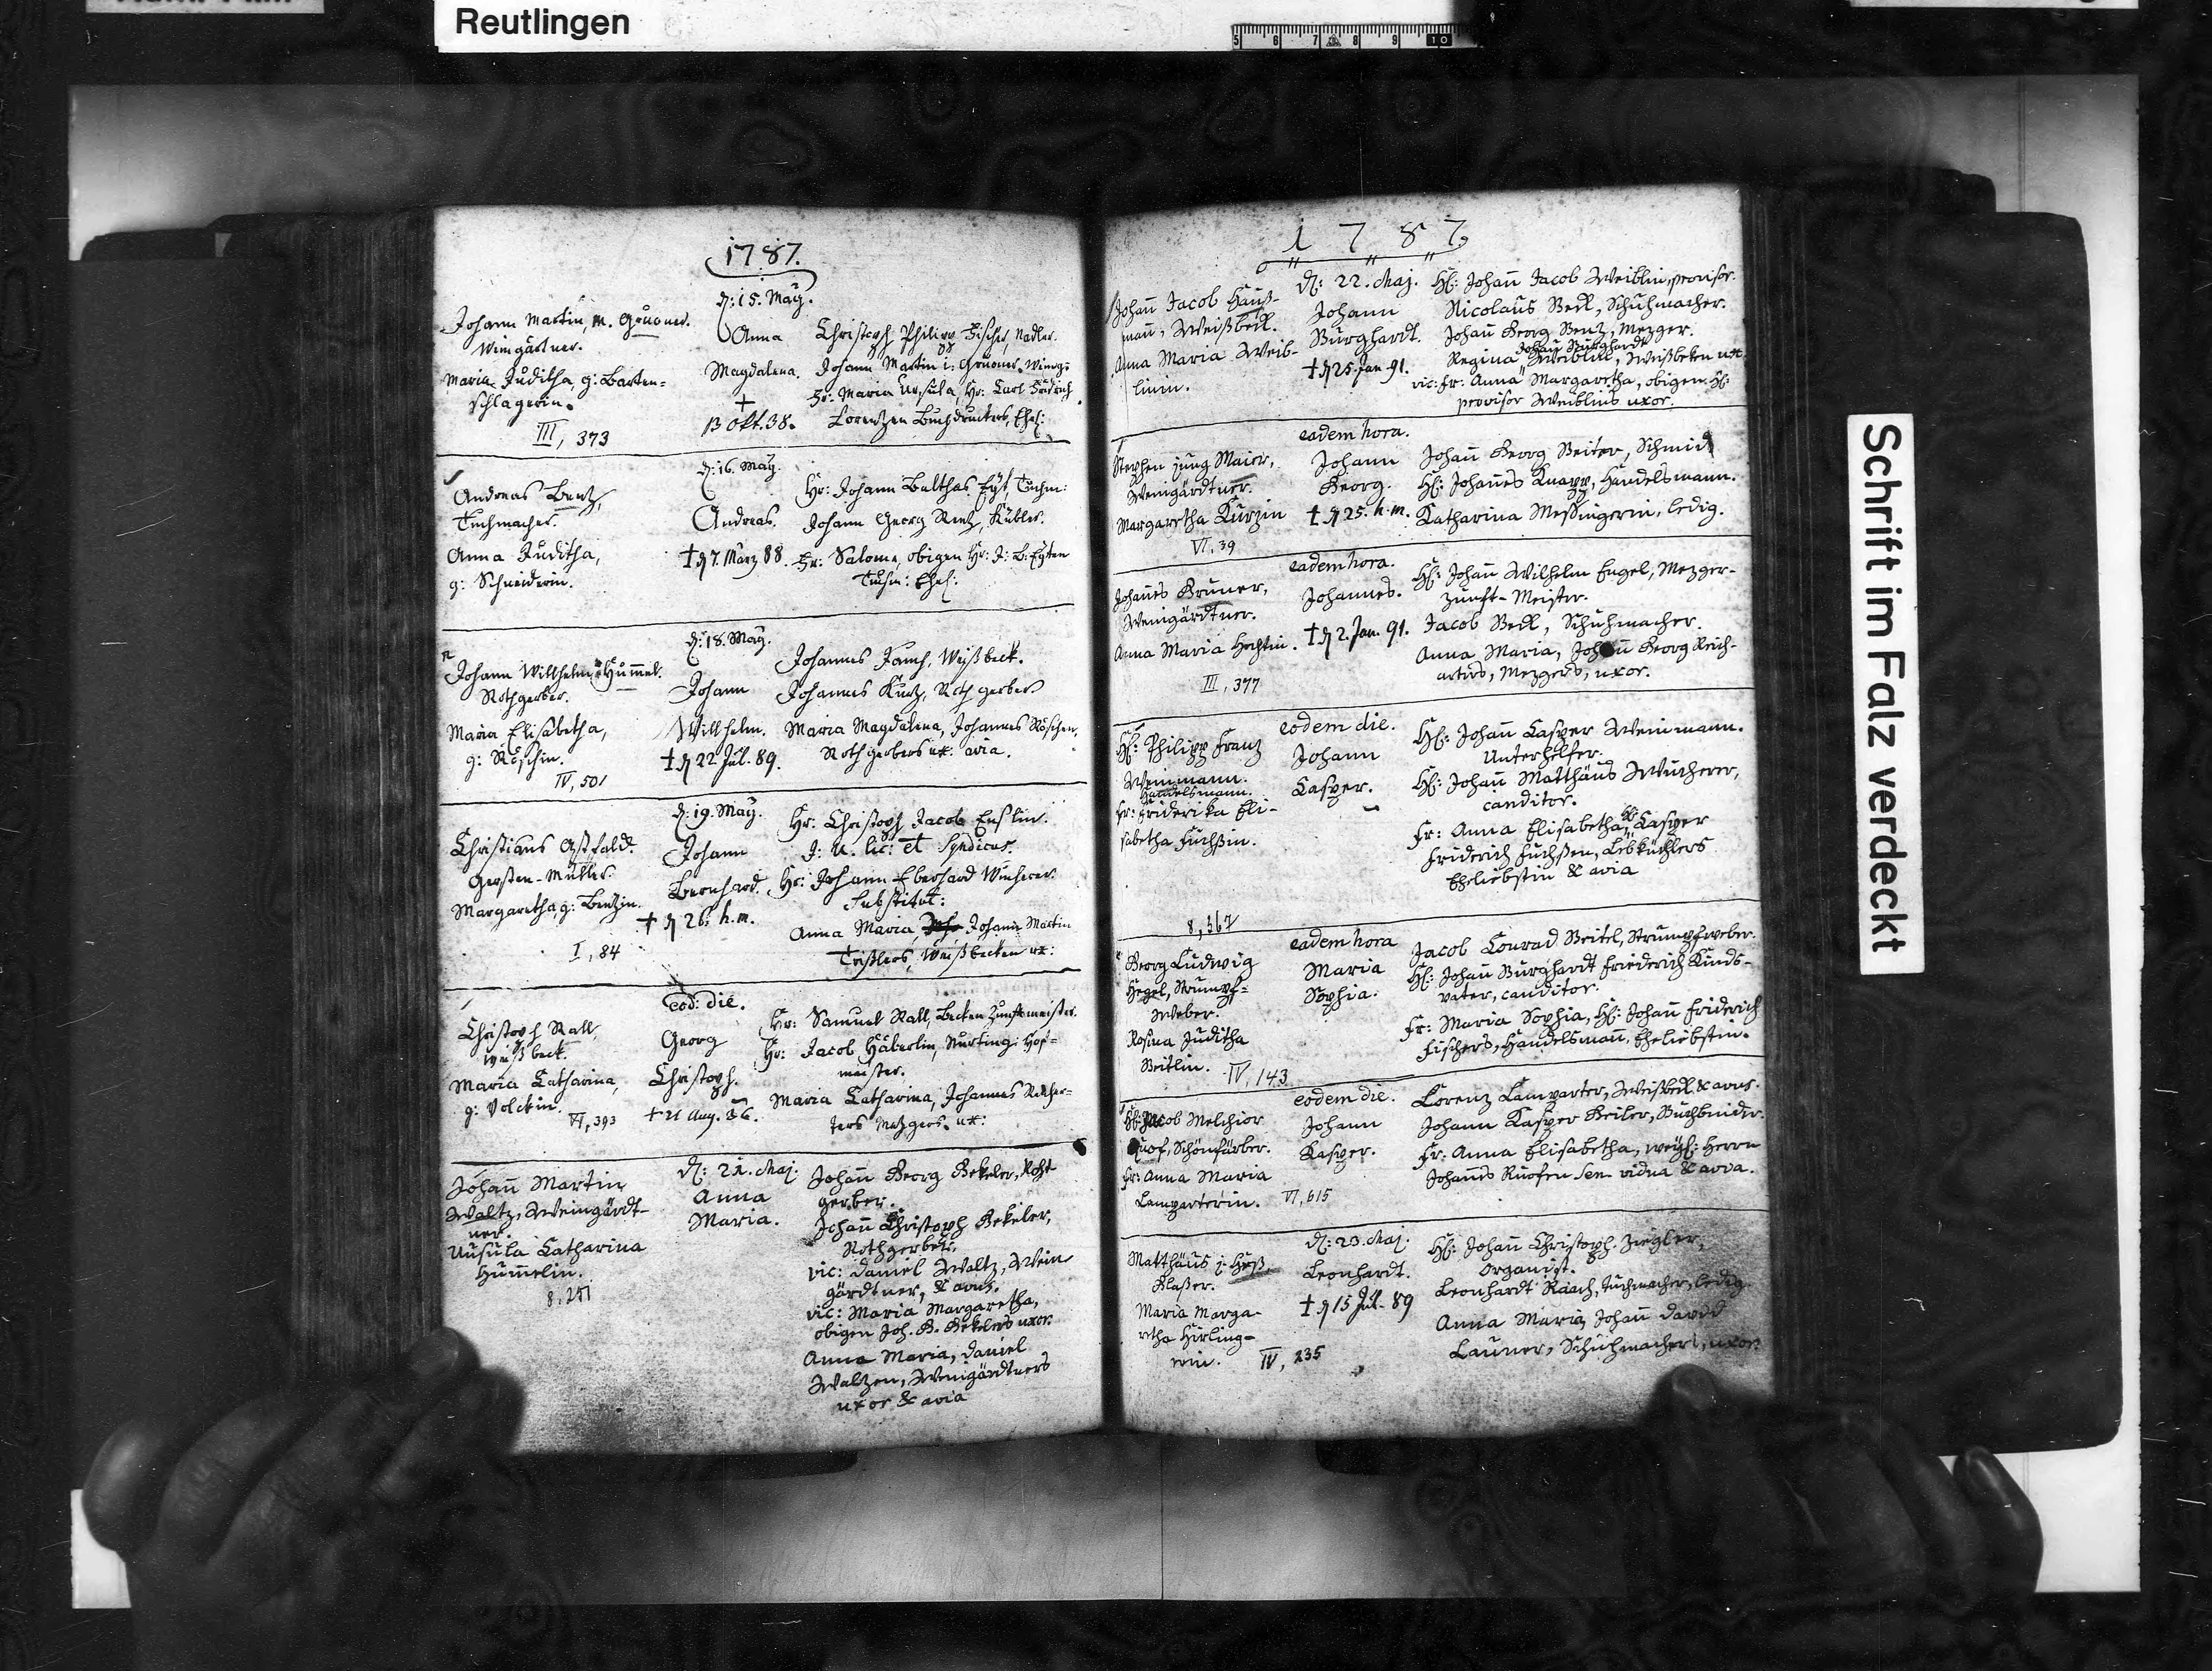 Reutlingen
5 6 7 8 9 10
Schrift im Falz verdeckt
1787.
d: 15. May.
Johann Martin, m. Gruoner.
Weingärtner.
Maria Juditha, g: Barten=
schlagerin.
III, 373
Anna
Magdalena.
†
13 Okt. 38.
Christoph Philipp Fischer, Nadler.
Johann Martin i: Gruoner, Weing:
Fr: Maria Ursula, Hr: Carl Friedrich
Lorentzen Buchdruckers, Ehel:
d: 16. May.
Andreas Bentz,
Tuchmacher.
Anna Juditha,
g: Schneiderin.
Andreas.
† d 7. März 88.
Hr: Johann Balthas Eyt, Tuchm:
Johann Georg Rentz, Kübler.
Fr: Salome, obigen Hr: J: B: Eyten
Tuchm: Ehel:
d: 18. May.
Johann Willhelm Hummel.
Rothgerber.
Maria Elisabetha,
g: Röschin.
IV, 501
Johann
Willhelm.
† d 22 Jul. 89.
Johannes Fauth, Weißbeck.
Johannes Kurtz, Rothgerber.
Maria Magdalena, Johannes Röschen,
Rothgerbers ux: avia.
d: 19. May.
Christianus Astfald.
Gersten-Müller.
Margaretha, g: Bentzin.
I, 84
Johann
Bernhard.
† d 26. h. m.
Hr: Christoph Jacob Enslin.
J: U. lic: et Syndicus.
Hr: Johann Eberhard Wucherer.
Substitut:
Anna Maria, Johann Martin
Trißlers, Weißbecken ux:
Eod: die.
Christoph Rall,
Weißbeck.
Maria Catharina,
g: Volckin.
VI, 393
Georg
Christoph.
† 21 Aug. 86.
Hr: Samuel Rall, Becken Zunftmeister.
Hr: Jacob Häberlin, Nürting: Hof=
meister.
Maria Catharina, Johannes
ters Metzgers. ux:
d: 21. Maj.
Johañ Martin
Waltz, Weingärdt-
ner.
Ursula Catharina
Hum̃elin.
8, 251
Anna
Maria.
Johañ Georg Gekeler, Roht
gerber.
Johañ Christoph Gekeler,
Rothgerber.
vic: Daniel Waltz, Wein
gärdtner, & avus.
vic: Maria Margaretha,
obigen Joh. G. Gekelers uxor.
Anna Maria, Daniel
Waltzen, Weingärdtners
uxor & avia
1787.
d: 22. Maj.
Johañ Jacob Hauß-
mañ, Weißbeck.
Anna Maria Weib-
linin.
Johann
Burghardt.
† d 25. Jan. 91.
H: Johañ Jacob Weiblin, provisor.
Nicolaus Beck, Schuhmacher.
Johañ Georg Bentz, Mezger.
Johañ Burghardt
Regina Weiblin, Weißbeken uxr.
vic: Fr: Anna Margaretha, obigen H:
provisor Weiblins uxor.
eadem hora.
Stephen jung Maier,
Weingärdtner.
Margaretha Kurzin
VI, 39
Johann
Georg.
† d 25. h. m.
Johañ Georg Beiter, Schmid
H: Johañes Knapp, Handelsmann.
Katharina Meßingerin, ledig.
eadem hora.
Johañes Gruner,
Weingärdtner.
Anna Maria Hechtin.
III, 377
Johannes.
† d 2. Jan. 91.
H: Johañ Wilhelm Engel, Mezger-
zunft-Meister.
Jacob Beck, Schuhmacher.
Anna Maria, Johañ Georg Reich-
arters, Mezgers, uxor.
eodem die.
H: Philipp Franz
Weinmann.
Handelsmann.
Fr: Friderika Eli-
sabetha Fuchßin.
8, 367
Johann
Casper.
H: Johañ Casper Weinmann.
Unterhelfer.
H: Johañ Matthäus Wucherer,
canditor.
Fr: Anna Elisabetha, H: Casper
Friderich Fuchßen, Lebküchlers
Eheliebstin & avia
eadem hora
Georg Ludwig
Hegel, Strumpf=
weber.
Rosina Juditha
Beitlin.
IV, 143
Maria
Sophia.
Jacob Conrad Beitel, Strumpfweber.
H: Johañ Burghardt Friederich Kinds-
vater, canditor.
Fr: Maria Sophia, H: Johañ Friderich
Fischers, Handelsmañ, Eheliebstin.
eodem die.
H: Jacob Melchior
Ruof, Schönfärber.
Fr: Anna Maria
Lamparterin.
VI, 615
Johann
Casper.
Lorenz Lamparter, Weißbeck & avus.
Johann Kasper Geiler, Buchbinder.
Fr: Anna Elisabetha, weyl: Herrn
Johañes Ruofen Sen. vidua & avia.
d: 23. Maj.
Matthäus j. Heß,
Glaßer.
Maria Marga-
retha Hirling-
erin.
IV, 235
Leonhardt.
† d 15 Jul. 89
H: Johañ Christoph Ziegler,
Organist.
Leonhardt Raach, Tuchmacher, ledig
Anna Maria Johañ David
Launer, Schuhmachers, uxor.